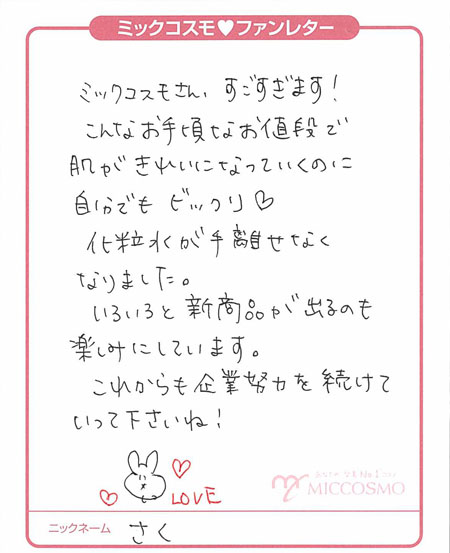 ミックコスモ♥ファンレター
ミックコスモさん、すごすぎます!
こんなお手頃なお値段で
肌がきれいになっていくのに
自分でもビックリ♡
化粧水が手離せなく
なりました。
いろいろと新商品が出るのも
楽しみにしています。
これからも企業努力を続けて
いって下さいね!
LOVE
MICCOSMO
ニックネーム さく